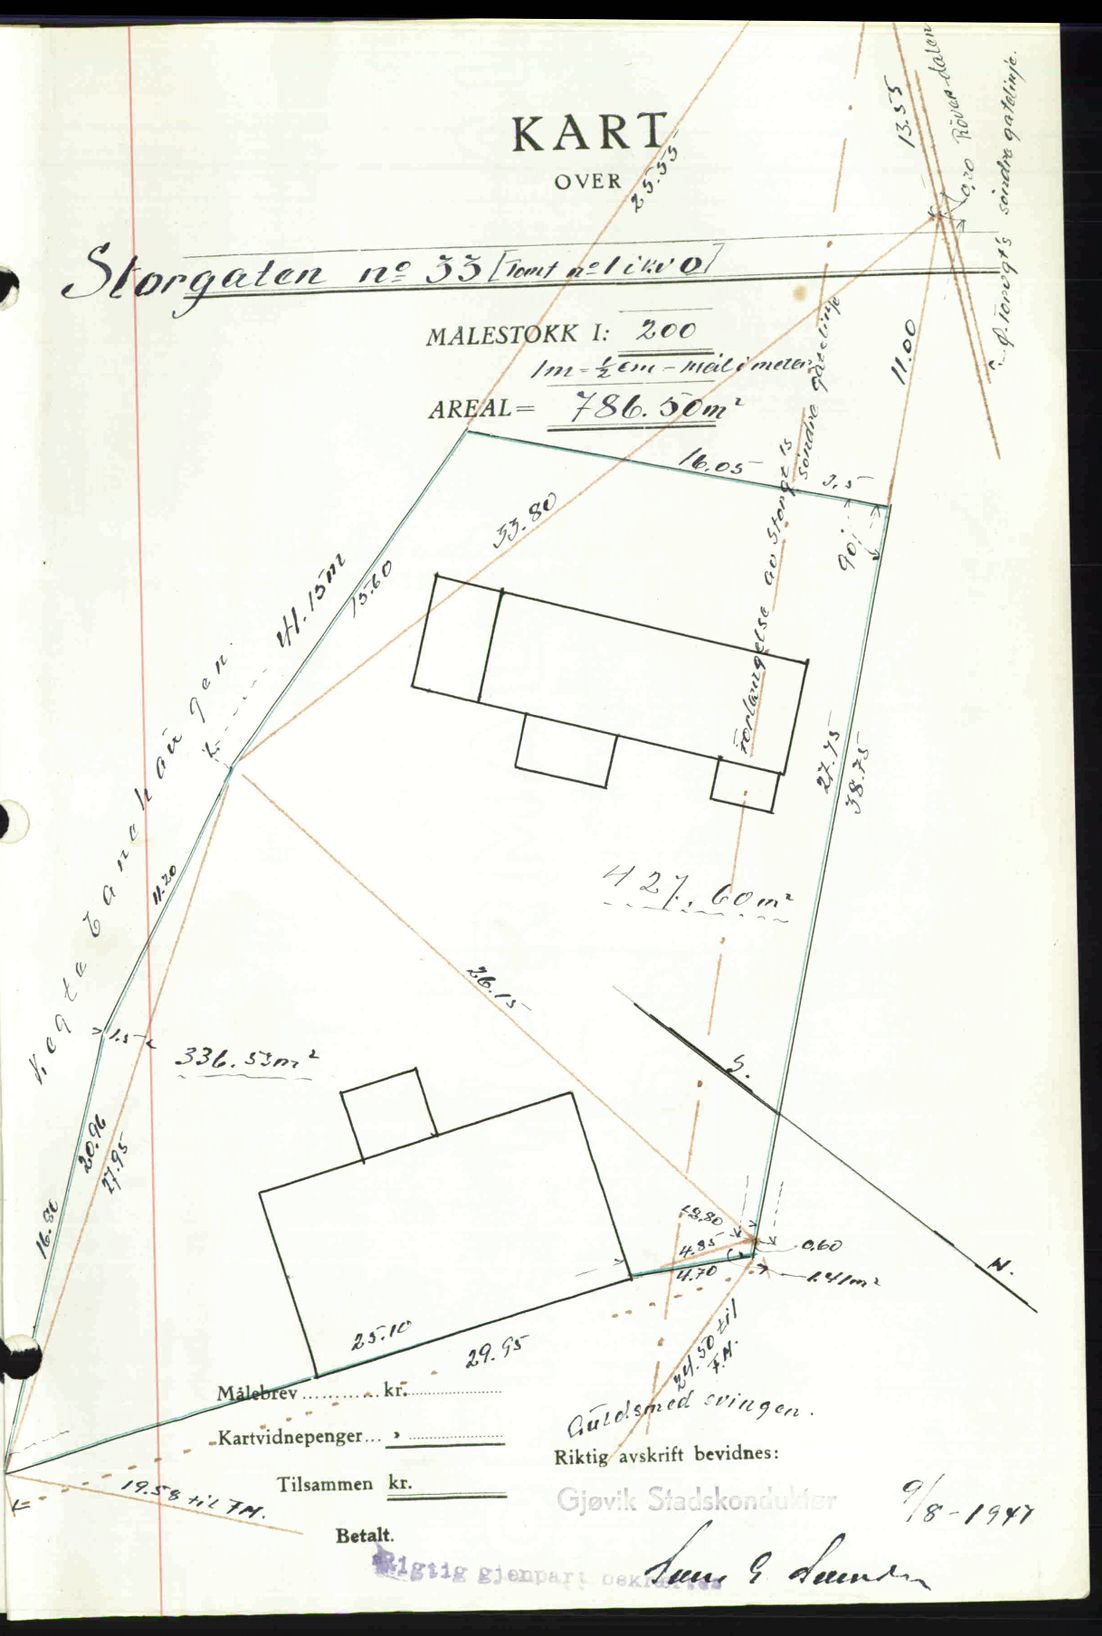 KART
OVER
Storgaten no 33 [Tomt no 1 i kv O]
MÅLESTOKK 1: 200
1m = ½ cm - meilimeter
AREAL = 786.50 m²
25.55
13.55
0,20
11.00
sondre gatelinje.
16.05
3.5
90
33.80
41.15m
15.60
forlængelse av Storgt's
sondre gatelinje
27.75
38.75
427.60 m²
11.20
26.15
1.5
336.53 m²
S.
N.
20.96
27.95
16.80
18.80
4.85
4.70
0.60
1.41 m²
24.50 til
F.M.
25.10
29.95
Målebrev ........... kr.
Guldsmed svingen.
Kartvidnepenger... »
Riktig avskrift bevidnes:
Tilsammen kr.
19.58 til F.M.
Gjøvik Stadskonduktør
9/8 - 1947
Betalt.
Rigtig gjenpart bekræftes